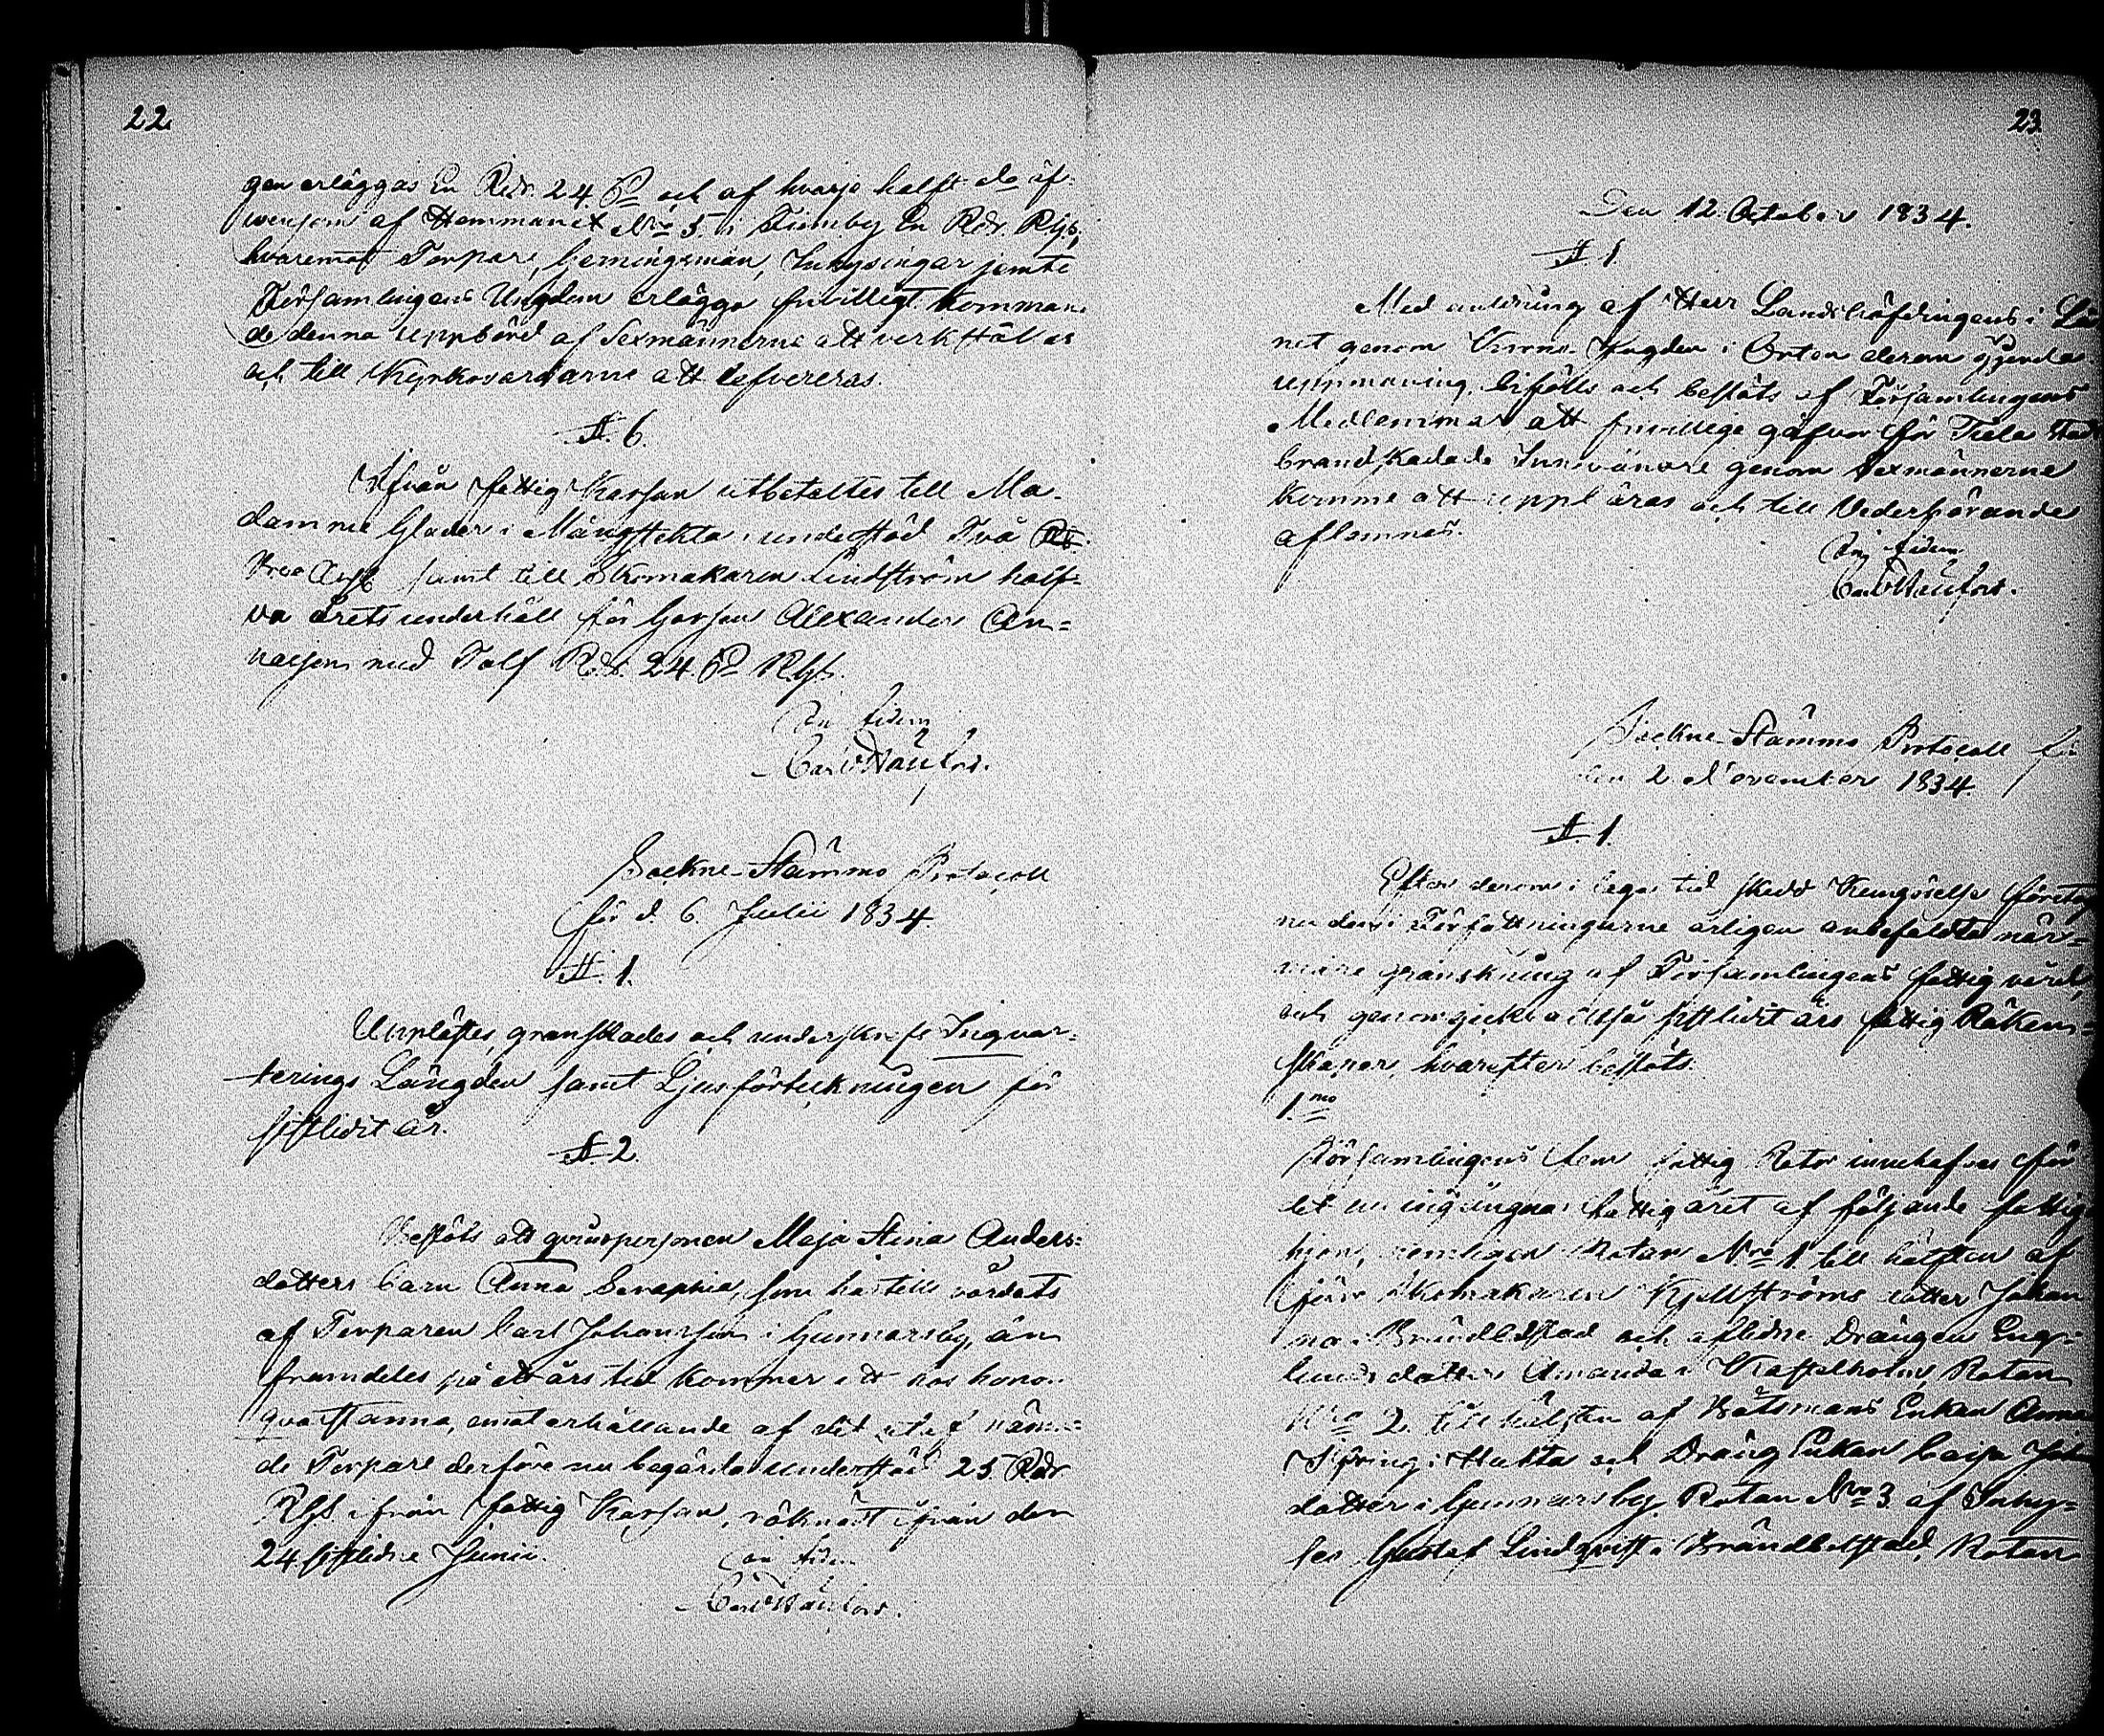 22.
gen erläggas En Rdr. 24 ß och af hvarje halft do äf-
wensom af Hemmanet Nro 5. i Finnby En Rdr. Rgs;
hvaremot Torpare, Gerningsmän, Inhysingar jemte
Församlingens Ungdom erlägga frivilligt. Komman-
de denna uppbörd af Sexmännerne att verkställas
och till Kyrkovärdarne att lefvereras.
§. 6.
Ifrån fattig Karsan utbetaltes till Ma-
damme Glader i Mångstekta i understöd Två
samt till Skomakaren Lindström half-
va årets underhåll för Gossen Alexander An-
med Tolf Rdr. 24. ß Rgs.
In fidem
Sockne-Stämmo Protocoll
för d. 6. Julii 1834.
§. 1.
Upplästes, granskades och underskrefs Inqvar-
terings Längden samt Ljusförteckningen för
sistlidit år.
§. 2.
Beslöts att qvinspersonen Maja Stina Anders-
dotters barn Anna Seraphia, som hos till vårdats
af Torparen Carl Johansson i Gunnarsby, än
framdeles på ett års tid kommer att hos honom
qvarstanna, emot erhållande af det utaf näm-
de Torpare derföre nu begärda understöd 25 Rdr
Rgs ifrån fattig Karsan, räknadt ifrån den
24 sistlidne Junii.
In fidem
23.
Den 12. October 1834.
§. 1.
Med anledning af Herr Landshöfdingens i Lä
net genom Krono Fogden i Orten derom gjorda
uppmaning, bifölls och beslöts af Församlingens
Medlemmar, att frivillige gåfvor för Stad
brandskadade Innevånare genom Sexmännerne
komme att uppbäras och till Vederbörande
aflemnas.
In fidem
Sockne-Stämmo Protocoll för
den 2 November 1834.
§. 1.
Efter derom i laga tid skedd Kungörelse företog
nu den i Författningarne årligen anbefaldte när-
mare granskning af Församlingens fattig vård,
och genomgickos sistlidit års fattig Räken-
skaper, hvarefter beslöts.
1mo
Församlingens fem fattig Rotar innehafvas för
det nu ingångna fattigåret af följande fattig-
hjon, nemligen Rotan Nro 1 till hälften af
förre Skomakaren Kjellströms dotter Johan
na i Brändbolstad och aflidne Drängen Eng-
lunds dotter Amanda i Kastelholm, Rotan
Nro 2. till hälften af Båtsmans Enkan Anna
Spring i Hulta och Dräng Enkan Caisa
dotter i Gunnarsby, Rotan Nro 3 af Inhy-
ses Gustaf Lindqvist i Brändbolstad, Rotan